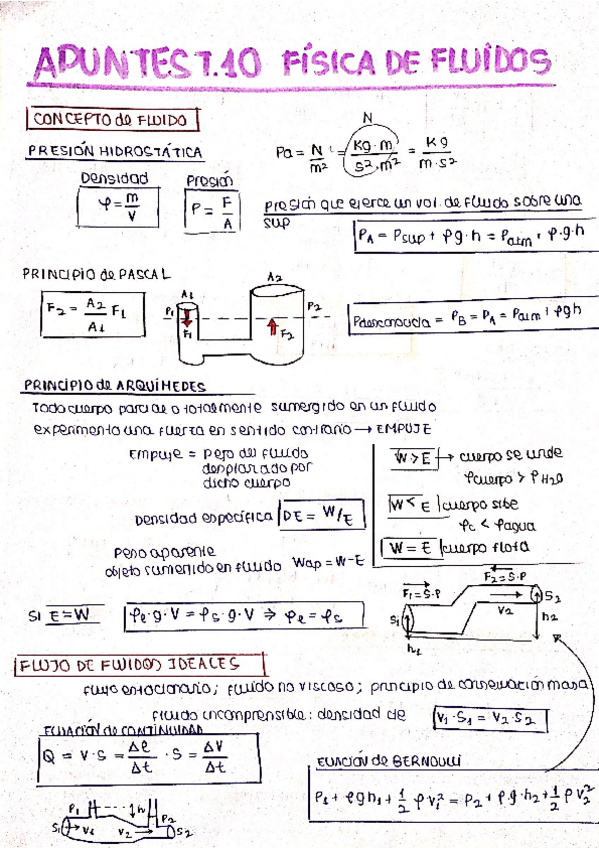 APUNTES T.10 FÍSICA DE FLUÍDOS
CONCEPTO de FLUIDO
PRESIÓN HIDROSTÁTICA
N
Pa = N/m² = Kg·m/s²·m² = Kg/m·s²
Densidad
ρ = m/V
Presión
P = F/A
presión que ejerce un vol. de fluido sobre una
sup
P_A = P_sup + ρg·h = P_atm + ρ·g·h
PRINCIPIO de PASCAL
F₂ = A₂/A₁ F₁
A₁
A₂
P₁
P₂
F₁
F₂
Pdesconocida = P_B = P_A = Patm + ρgh
PRINCIPIO de ARQUÍMEDES
Todo cuerpo parcial o totalmente sumergido en un fluido
experimenta una fuerza en sentido contrario → EMPUJE
Empuje = peso del fluido
desplazado por
dicho cuerpo
W > E → cuerpo se unde
ρcuerpo > ρH₂O
W < E cuerpo sube
ρc < ρagua
W = E cuerpo flota
Densidad específica DE = W/E
Peso aparente
objeto sumergido en fluido Wap = W-E
SI E = W ρe·g·V = ρs·g·V ⇒ ρe = ρs
F₁ = S·P
F₂ = S·P
S₁
S₂
V₂
h₁
h₂
FLUJO DE FLUIDOS IDEALES
Flujo estacionario; fluido no viscoso; principio de conservación masa
fluido incomprensible: densidad de
V₁·S₁ = V₂·S₂
ECUACIÓN de CONTINUIDAD
Q = V·S = Δl/Δt · S = ΔV/Δt
EUACIÓN de BERNOULLI
P₁ + ρgh₁ + 1/2 ρV₁² = P₂ + ρ·g·h₂ + 1/2 ρV₂²
P₁
h
P₂
S₁
V₁
V₂
S₂